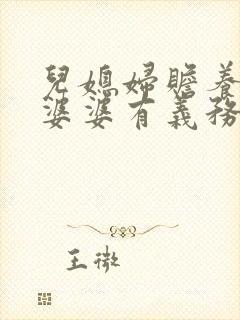 兒媳婦贍養
婆婆有義務
王微